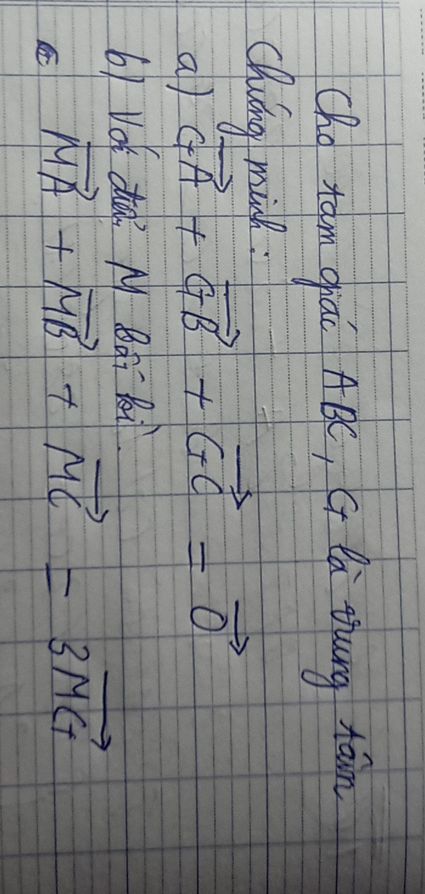 Cho tam giác ABC, G là trung tâm
Chứng minh:
a) GA + GB + GC = 0
b) Với điểm M bất kì.
MA + MB + MC = 3MG